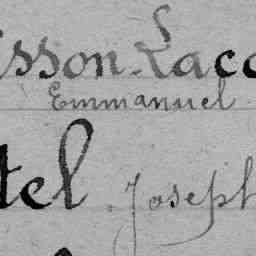 isson-Lacc
Emmanuel
tel Joseph